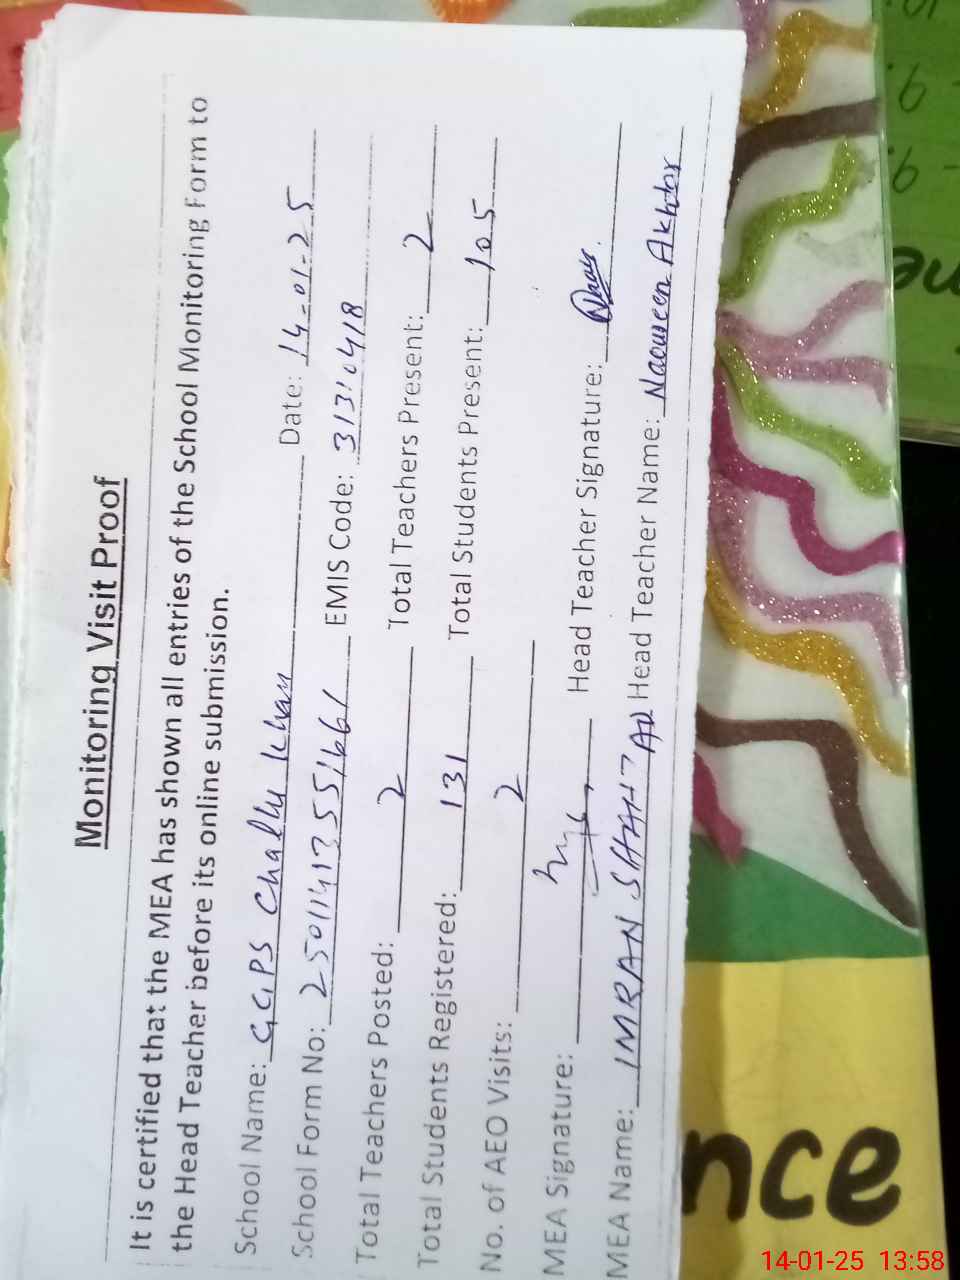 Monitoring Visit Proof
It is certified that the MEA has shown all entries of the School Monitoring Form to
the Head Teacher before its online submission.
School Name: GGPS Chally Khan Date: 14-01-25
School Form No: EMIS Code: 31310418
Total Teachers Posted: 2 Total Teachers Present: 2
Total Students Registered: 131 Total Students Present: 105
No. of AEO Visits: 2
MEA Signature: Head Teacher Signature:
MEA Name: IMRAN SHAHZAD Head Teacher Name: Naoureen Akhtar
nce
14-01-25 13:58